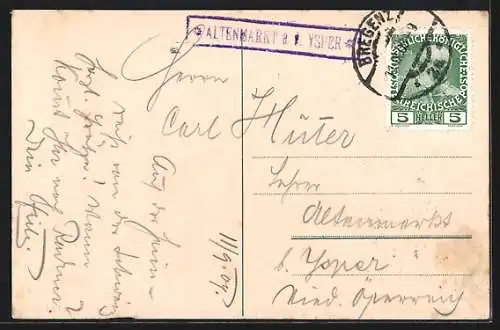 *ALTENMARKT a. d. YSPER*
BREGENZ
KAISERLICHE KÖNIGLICHE
ÖSTERREICHISCHE POST
5 HELLER 5
Herrn
Carl Hüter
Lehrer
Altenmarkt
b. Ysper
Nied. Österreich
11/9.09.
Auf der Heim-
reise von der Schweiz
herzl. Grüße! Wann
kommt Ihr nach
Dein